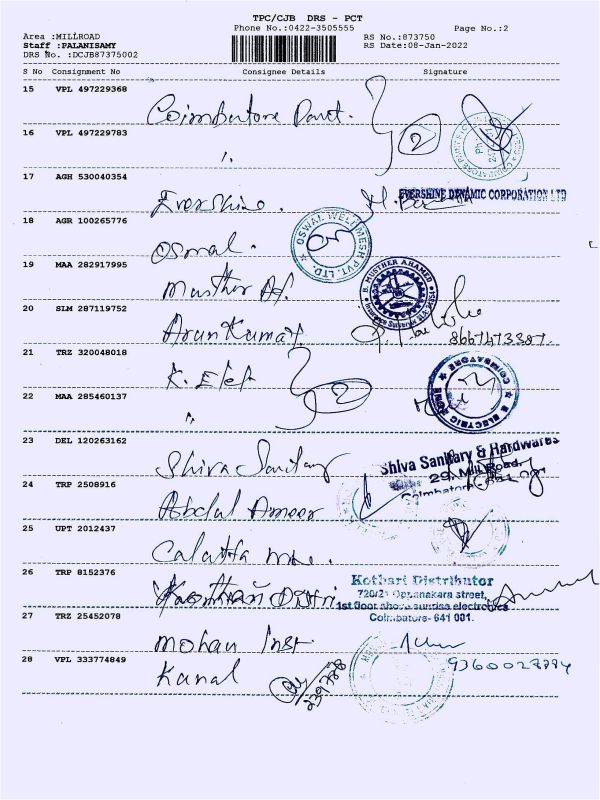 TPC/CJB DRS - PCT
Phone No.:0422-3505555
Page No.:2
Area :MILLROAD
RS No.:873750
Staff :PALANISAMY
RS Date:08-Jan-2022
DRS No. :DCJB87375002
S No Consignment No Consignee Details Signature
15 VPL 497229368
Coimbatore
16 VPL 497229783
2
17 AGH 530040354
Evershine.
EVERSHINE DYNAMIC CORPORATION LTD
18 AGR 100265776
Oswal.
OSWAL WELDMESH PVT. LTD.
19 MAA 282917995
Musther
B. MUSTHER AHAMED
20 SLM 287119752
Arun Kumar
8667473387
21 TRZ 320048018
K. Elet
2
22 MAA 285460137
COIMBATORE
ELECTRIC
23 DEL 120263162
Shiva Sanitary
Shiva Sanitary & Hardwares
29, Mill Road,
Coimbatore
24 TRP 2508916
Abdul Ameer
25 UPT 2012437
Calcutta
26 TRP 8152376
Kothari Distri
Kothari Distributor
720/21 Oppanakara street,
1st floor above sunrise electronics
Coimbatore- 641 001.
27 TRZ 25452078
Mohan Inst
28 VPL 333774849
Kanal